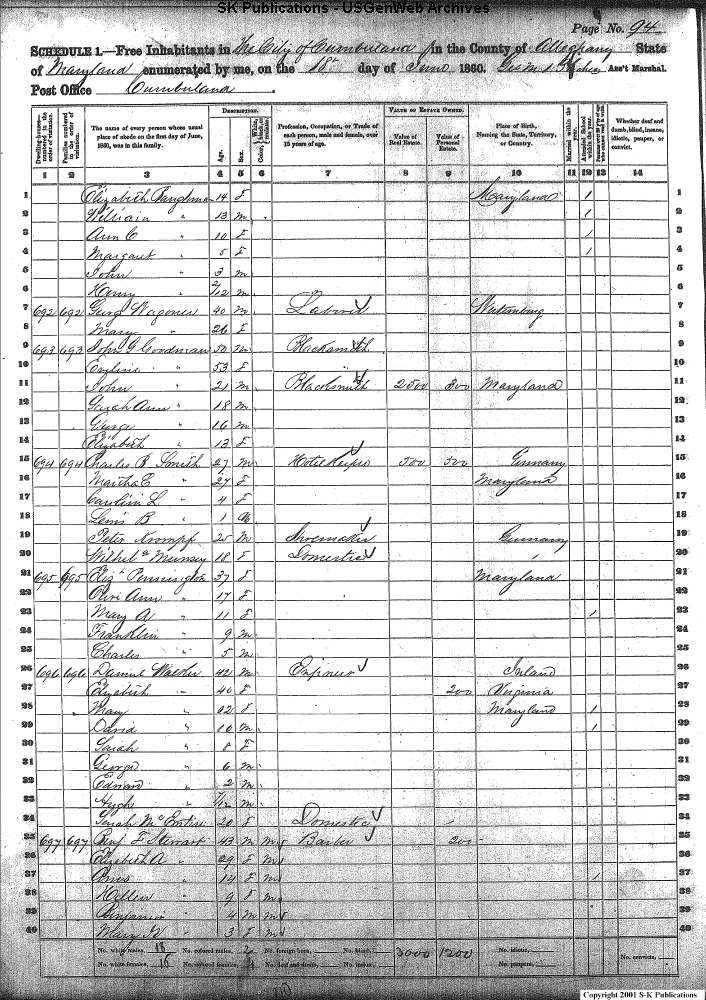 SK Publications - USGenWeb Archives
Page No. 94
SCHEDULE 1.—Free Inhabitants in The City of Cumberland in the County of Alleghany State
of Maryland enumerated by me, on the 18th day of June 1860. Ass't Marshal.
Post Office Cumberland.
Dwelling-houses—numbered in the order of visitation.
Families numbered in the order of visitation.
The name of every person whose usual place of abode on the first day of June, 1860, was in this family.
DESCRIPTION.
Age.
Sex.
Color, White, black, or mulatto.
Profession, Occupation, or Trade of each person, male and female, over 15 years of age.
VALUE OF ESTATE OWNED.
Value of Real Estate.
Value of Personal Estate.
Place of Birth, Naming the State, Territory, or Country.
Married within the year.
Attended School within the year.
Whether deaf and dumb, blind, insane, idiotic, pauper, or convict.
1 2 3 4 5 6 7 8 9 10 11 12 13 14
1 Elizabeth Baughman 14 F Maryland / 1
2 William " 13 M / 2
3 Ann C " 10 F / 3
4 Margaret " 5 F / 4
5 John " 3 M 5
6 Henry " 2/12 M 6
7 692 692 Wagoner 40 M Wutemburg 7
8 Mary " 26 F 8
9 693 693 John G Goodman 50 M Blacksmith 9
10 " 53 F 10
11 John " 21 M Blacksmith 2500 800 Maryland 11
12 Sarah Ann " 18 12
13 George " 16 M 13
14 Elizabeth " 13 F 14
15 694 694 Charles B Smith 27 M Hotel Keeper 500 500 Germany 15
16 Martha E " 27 F Maryland 16
17 Caroline L " 4 F 17
18 Lewis B " 1 18
19 Peter Krompf 25 M Shoemaker Germany 19
20 Munsey 18 F Domestic 20
21 695 695 Eliz Pennington 37 F Maryland 21
22 Ann " 17 F 22
23 Mary A " 11 F / 23
24 Franklin " 9 M 24
25 Charles " 5 M 25
26 696 696 Daniel 42 M Engineer Ireland 26
27 Elizabeth " 40 F 200 Virginia 27
28 Mary " 12 F Maryland / 28
29 David " 10 M / 29
30 Sarah " 8 F 30
31 George " 6 M 31
32 Edward " 2 M 32
33 Hugh " 7/12 M 33
34 Sarah 20 F Domestic 34
35 697 697 Benj F Stewart 43 M M Barber 200 35
36 Elizabeth A " 29 F M 36
37 " 14 F M / 37
38 Hellen " 9 F M 38
39 Benjamin " 4 M M 39
40 Mary " 3 F M 40
No. white males, 18 No. colored males, 2 No. foreign born, No. blind, 3000 1200 No. idiotic,
No. white females, No. colored females, 4 No. deaf and dumb, No. insane, No. paupers, No. convicts,
Copyright 2001 S-K Publications